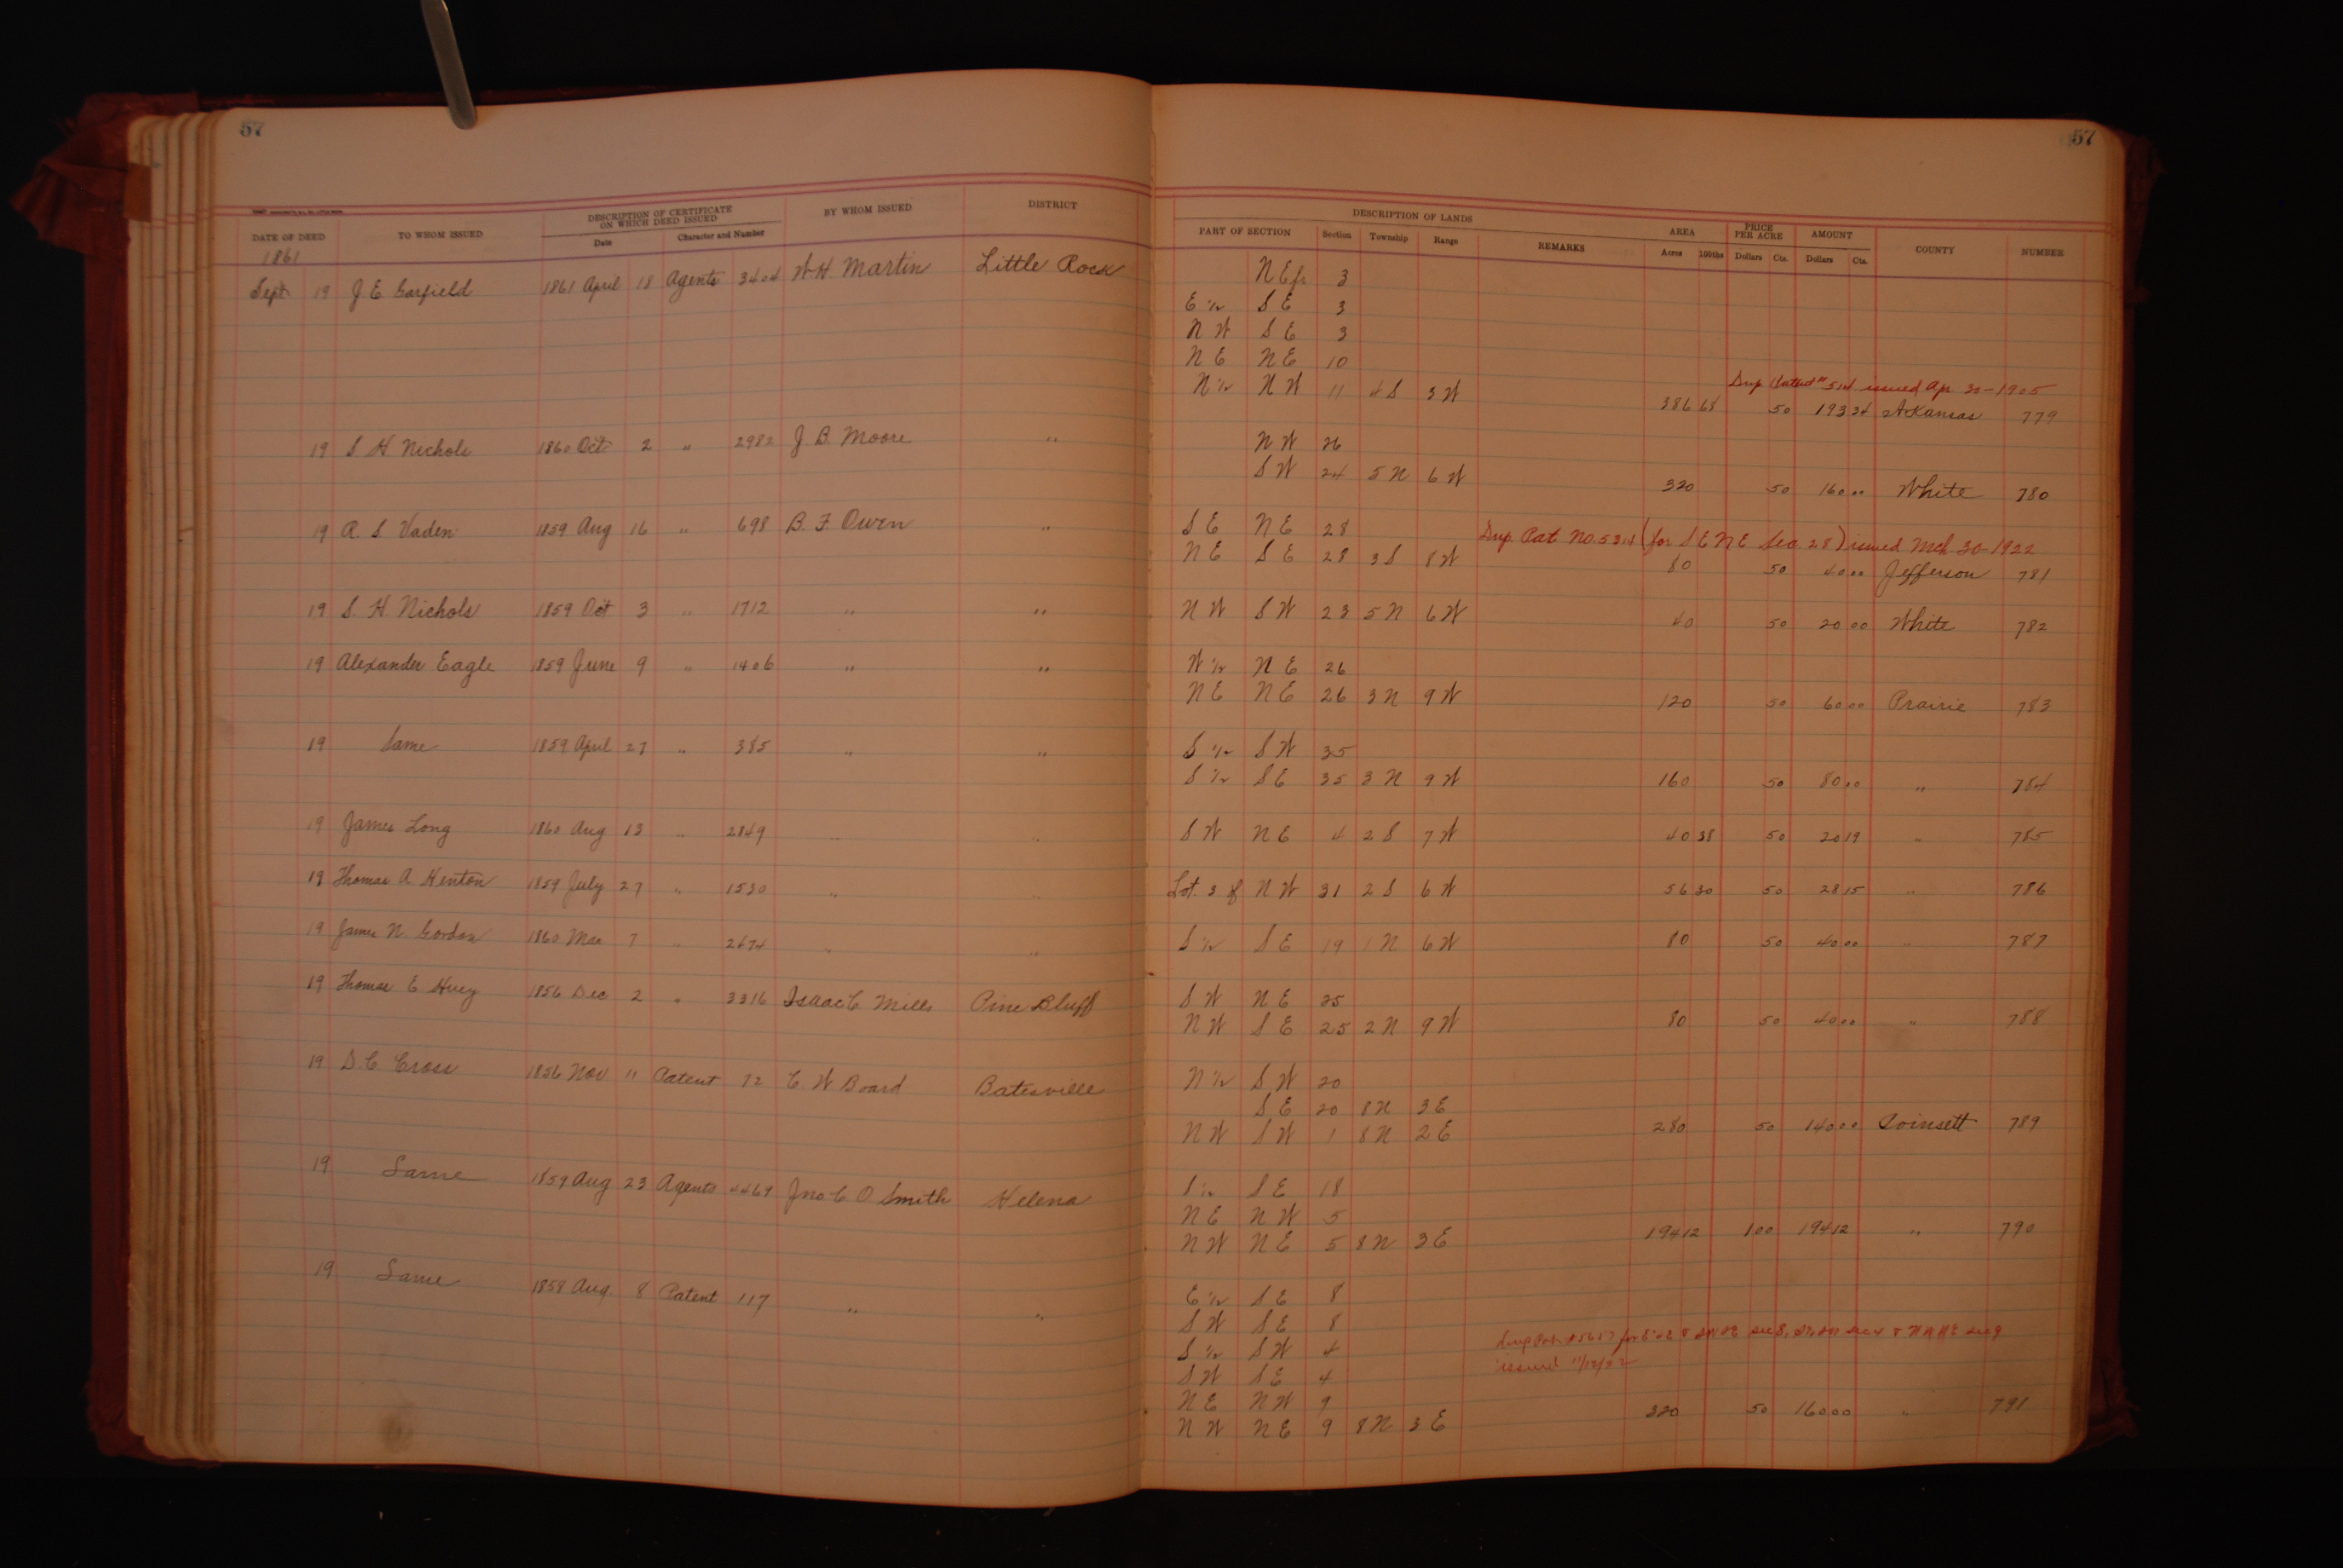 57
57
DATE OF DEED TO WHOM ISSUED DESCRIPTION OF CERTIFICATE ON WHICH DEED ISSUED BY WHOM ISSUED DISTRICT DESCRIPTION OF LANDS AREA PRICE PER ACRE AMOUNT COUNTY NUMBER
Date Character and Number PART OF SECTION Section Township Range REMARKS Acres 100ths Dollars Cts. Dollars Cts.
1861
Sept 19 J E Garfield 1861 April 18 Agents 3404 W H Martin Little Rock N E fr 3
E 1/2 S E 3
N W S E 3
N E N E 10
Dup issued Apr 30-1905
N 1/2 N W 11 4 S 3 W 386 68 50 193 34 Arkansas 779
19 S H Nichols 1860 Oct 2 " 2982 J. B. Moore " N W 26
S W 24 5 N 6 W 320 50 160 00 White 780
19 R. S. Vaden 1859 Aug 16 " 698 B. F. Owen " S E N E 28 Dup. Pat No. 5314 (for S E N E Sec 28) issued Mch 30-1922
N E S E 28 3 S 8 W 80 50 40 00 Jefferson 781
19 S. H. Nichols 1859 Oct 3 " 1712 " " N W S W 23 5 N 6 W 40 50 20 00 White 782
19 Alexander Eagle 1859 June 9 " 1406 " " W 1/2 N E 26
N E N E 26 3 N 9 W 120 50 60 00 Prairie 783
19 Same 1859 April 27 " 385 " " S 1/2 S W 35
S 1/2 S E 35 3 N 9 W 160 50 80 00 " 784
19 James Long 1860 Aug 13 " 2849 " " S W N E 4 2 S 7 W 40 38 50 20 19 " 785
19 Thomas A. Henton 1859 July 27 " 1530 " " Lot 3 of N W 31 2 S 6 W 56 30 50 28 15 " 786
19 James N. Gordon 1860 Mar 7 " 2674 " " S 1/2 S E 19 1 N 6 W 80 50 40 00 " 787
19 Thomas E Huey 1856 Dec 2 " 3316 Isaac C Mills Pine Bluff S W N E 25
N W S E 25 2 N 9 W 80 50 40 00 " 788
19 D. C. Cross 1856 Nov 11 Patent 72 C W Board Batesville N 1/2 S W 20
S E 20 8 N 3 E
N W S W 1 8 N 2 E 280 50 140 00 Poinsett 789
19 Same 1859 Aug 23 Agents 4469 Jno. C. O. Smith Helena S 1/2 S E 18
N E N W 5
N W N E 5 8 N 3 E 194 12 1 00 194 12 " 790
19 Same 1858 Aug 8 Patent 117 " " E 1/2 S E 8
S W S E 8
S 1/2 S W 4
Dup Pat. issued
S W S E 4
N E N W 9
N W N E 9 8 N 3 E 320 50 160 00 " 791